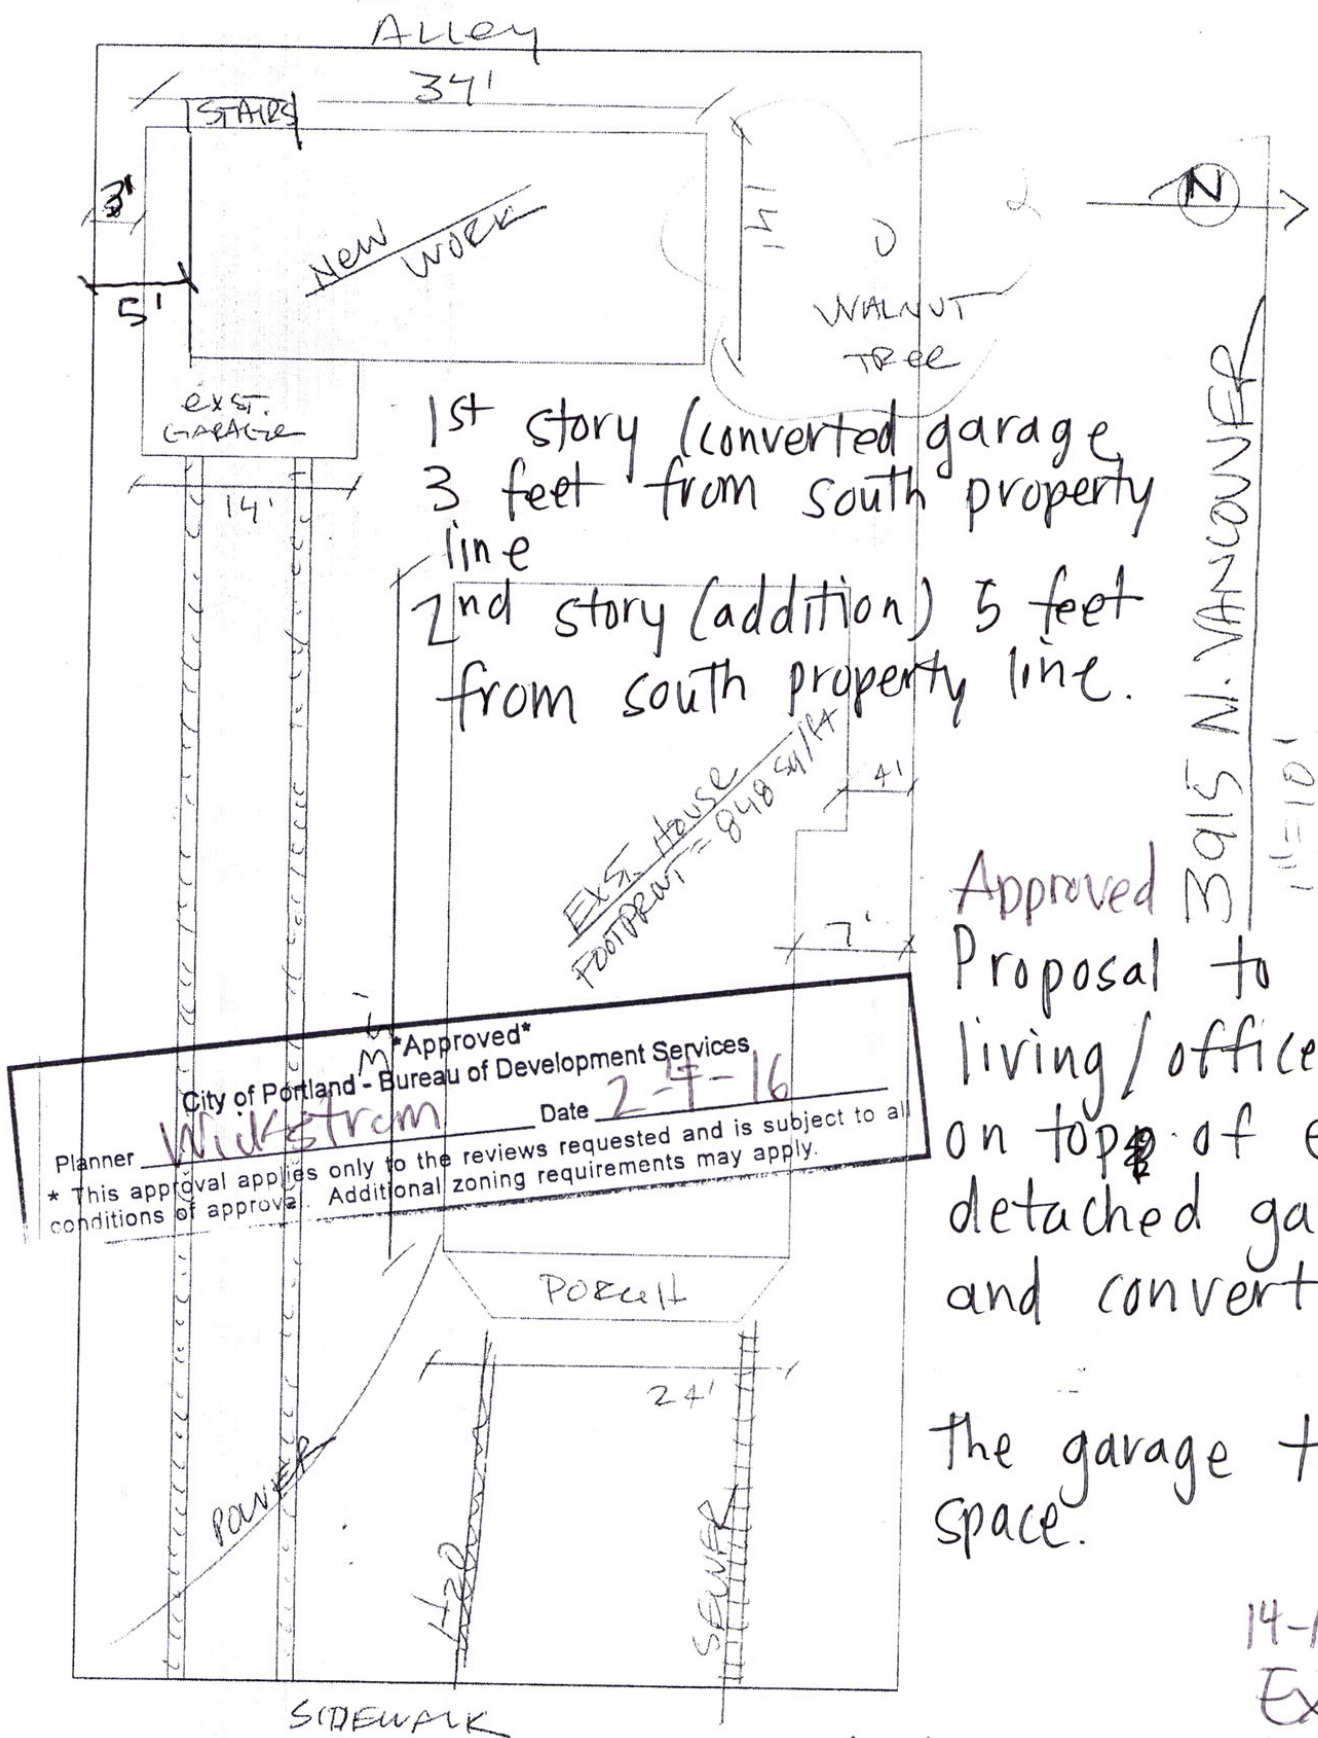 Alley
34'
STAIRS
3'
5'
New
Work
14'
N
WALNUT
TREE
EXST.
GARAGE
14'
1st story (converted garage
3 feet from south property
line
2nd story (addition) 5 feet
from south property line.
3915 N. VANCOUVER
1"=10'
EXST. House
FOOTPRINT = 848 sq/ft
4'
7'
Approved
Proposal to
living/office
on top of e
detached ga
and convert
the garage t
space.
*Approved*
City of Portland - Bureau of Development Services
Planner Wickstrom Date 2-4-16
* This approval applies only to the reviews requested and is subject to all
conditions of approval. Additional zoning requirements may apply.
PORCH
24'
POWER
H2O
SEWER
SIDEWALK
14-1
Ex